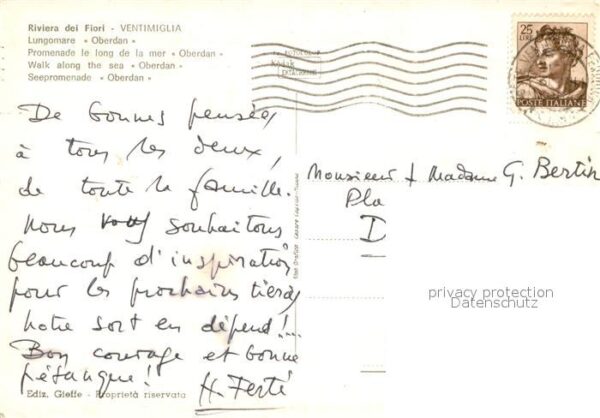 Riviera dei Fiori - VENTIMIGLIA
Lungomare « Oberdan »
Promenade le long de la mer « Oberdan »
Walk along the sea « Oberdan »
Seepromenade « Oberdan »
FOTOCOLOR
kodak
EKTACHROME
25
LIRE
POSTE ITALIANE
De bonnes pensées
à tous les deux,
de toute la famille.
nous vous souhaitons
beaucoup d'inspiration
pour les prochains tiercés
notre sort en dépend!...
Bon courage et bonne
pétanque! H. Ferté
Monsieur + Madame G. Bertin
Pla
D
privacy protection
Datenschutz
Ediz. Gieffe - Proprietà riservata